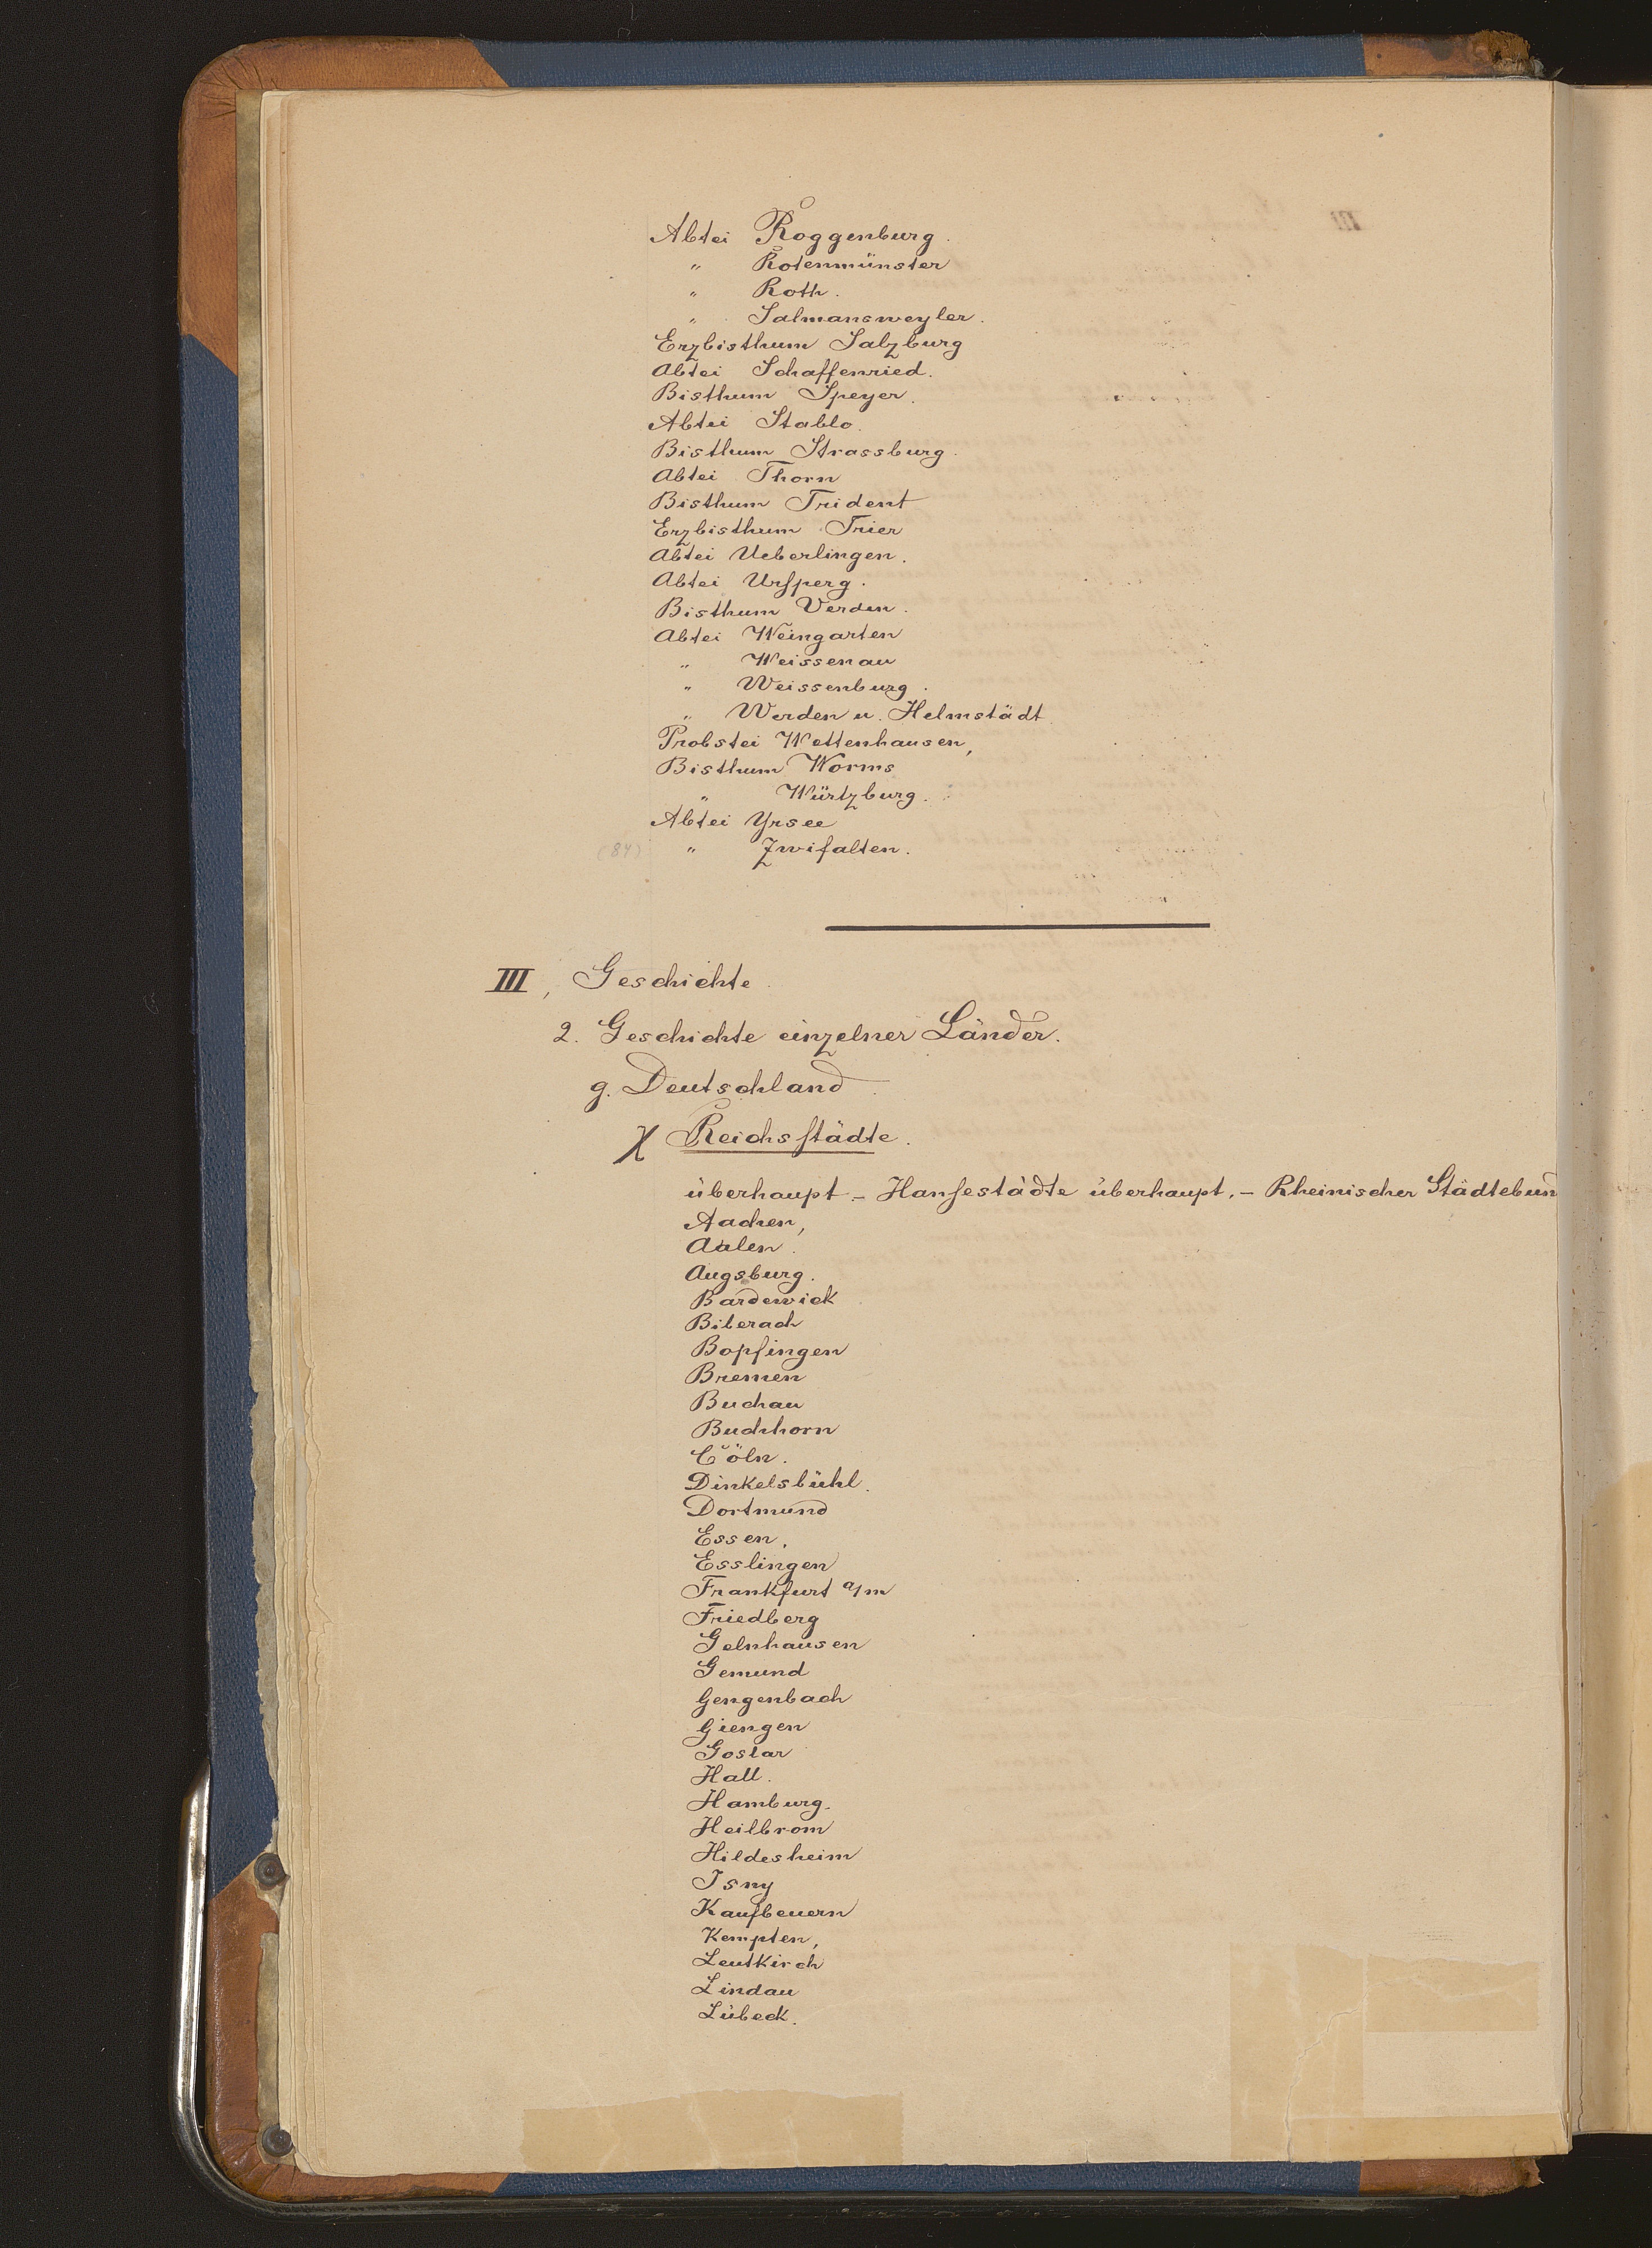 Abtei Roggenburg.
" Rotenmünster
" Roth.
" Salmansweyler.
Erzbisthum Salzburg
Abtei Schaffenried.
Bisthum Speyer.
Abtei Stablo.
Bisthum Strassburg.
Abtei Thorn
Bisthum Trident
Erzbisthum Trier
Abtei Ueberlingen.
Abtei Ursperg.
Bisthum Verden.
Abtei Weingarten
" Weissenau
" Weissenburg.
" Werden u. Helmstädt.
Probstei Wettenhausen,
Bisthum Worms
" Würtzburg.
Abtei Yrsee
(84) " Zwifalten.
III, Geschichte.
2. Geschichte einzelner Länder.
g. Deutschland
χ Reichsstädte.
überhaupt. – Hansestädte überhaupt. – Rheinischer Städtebund
Aachen,
Aalen.
Augsburg.
Bardewick
Biberach
Bopfingen
Bremen
Buchau
Buchhorn
Cöln.
Dinkelsbühl.
Dortmund
Essen.
Esslingen
Frankfurt a/m
Friedberg
Gelnhausen
Gemund
Gengenbach
Giengen
Goslar
Hall.
Hamburg.
Heilbrom
Hildesheim
Isny
Kaufbeuern
Kempten,
Leutkirch
Lindau
Lübeck.